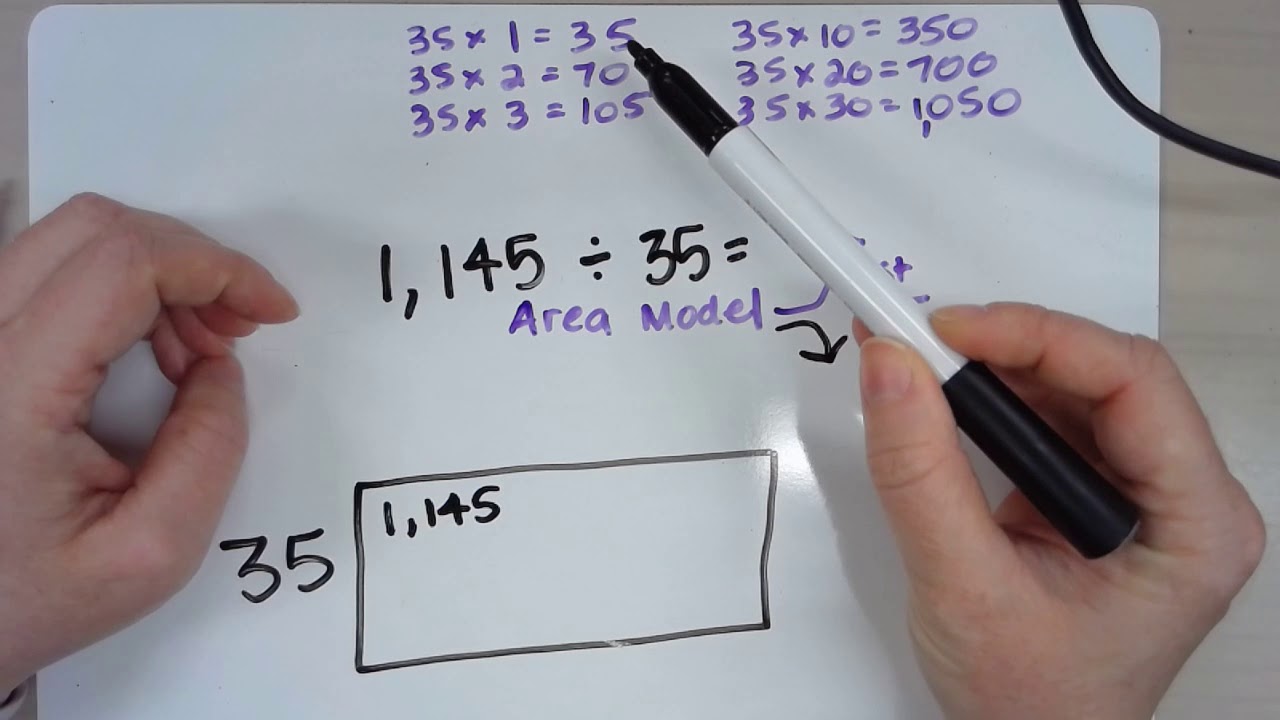 35 × 1 = 35
35 × 2 = 70
35 × 3 = 105
35 × 10 = 350
35 × 20 = 700
35 × 30 = 1,050
1,145 ÷ 35 =
Area Model
1,145
35